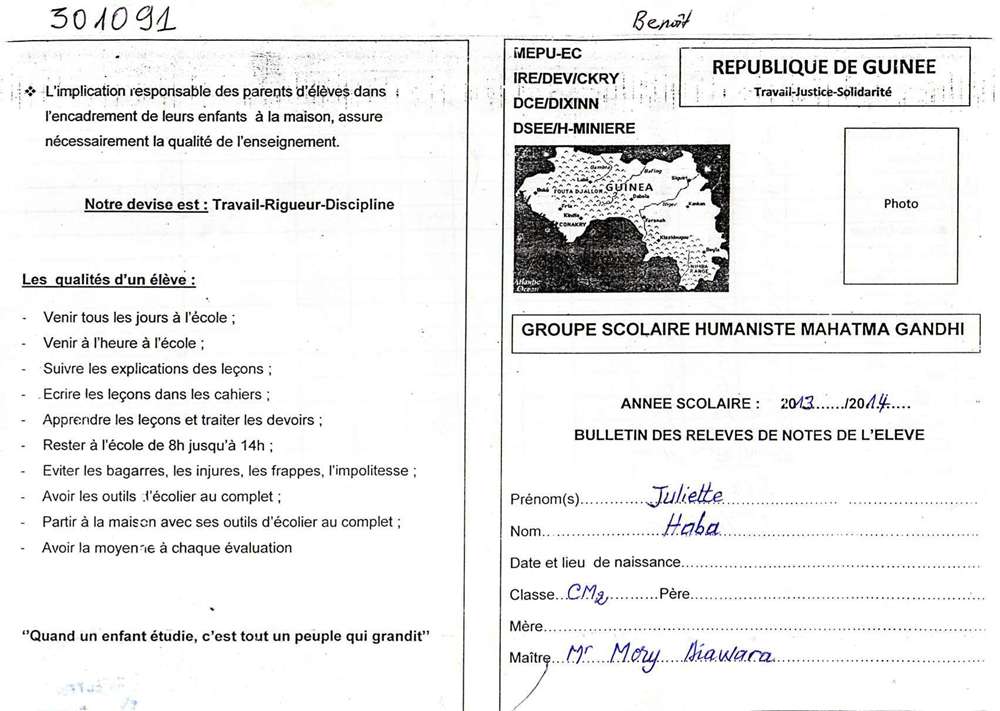 301091
❖ L'implication responsable des parents d'élèves dans
l'encadrement de leurs enfants à la maison, assure
nécessairement la qualité de l'enseignement.
Notre devise est : Travail-Rigueur-Discipline
Les qualités d'un élève :
- Venir tous les jours à l'école ;
- Venir à l'heure à l'école ;
- Suivre les explications des leçons ;
- Ecrire les leçons dans les cahiers ;
- Apprendre les leçons et traiter les devoirs ;
- Rester à l'école de 8h jusqu'à 14h ;
- Eviter les bagarres, les injures, les frappes, l'impolitesse ;
- Avoir les outils l'écolier au complet ;
- Partir à la maison avec ses outils d'écolier au complet ;
- Avoir la moyenne à chaque évaluation
‘'Quand un enfant étudie, c'est tout un peuple qui grandit’'
Benoît
MEPU-EC
IRE/DEV/CKRY
DCE/DIXINN
DSEE/H-MINIERE
REPUBLIQUE DE GUINEE
Travail-Justice-Solidarité
GUINEA
FOUTA DJALLON
CONAKRY
Kindia
Labe
Dabola
Kankan
Siguiri
Faranah
Niger
NIMBA RANGE
Atlantic
Ocean
Photo
GROUPE SCOLAIRE HUMANISTE MAHATMA GANDHI
ANNEE SCOLAIRE : 2013....../2014.....
BULLETIN DES RELEVES DE NOTES DE L'ELEVE
Prénom(s)..........Juliette..........
Nom..........Haba..........
Date et lieu de naissance..........
Classe...CM2..........Père..........
Mère..........
Maître...Mr Mory Diawara..........